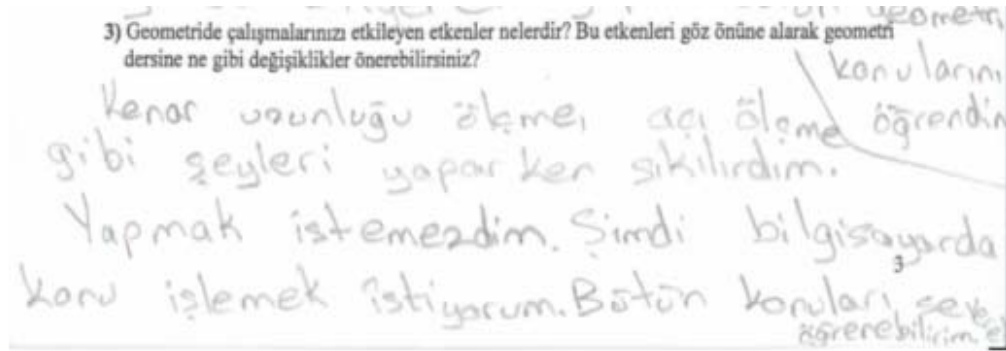 geometri
3) Geometride çalışmalarınızı etkileyen etkenler nelerdir? Bu etkenleri göz önüne alarak geometri
dersine ne gibi değişiklikler önerebilirsiniz?
konularını
öğrendim
Kenar uzunluğu ölçme, açı ölçme
gibi şeyleri yaparken sıkılırdım.
Yapmak istemezdim. Şimdi bilgisayarda
3
konu işlemek istiyorum. Bütün konuları
öğrenebilirim.